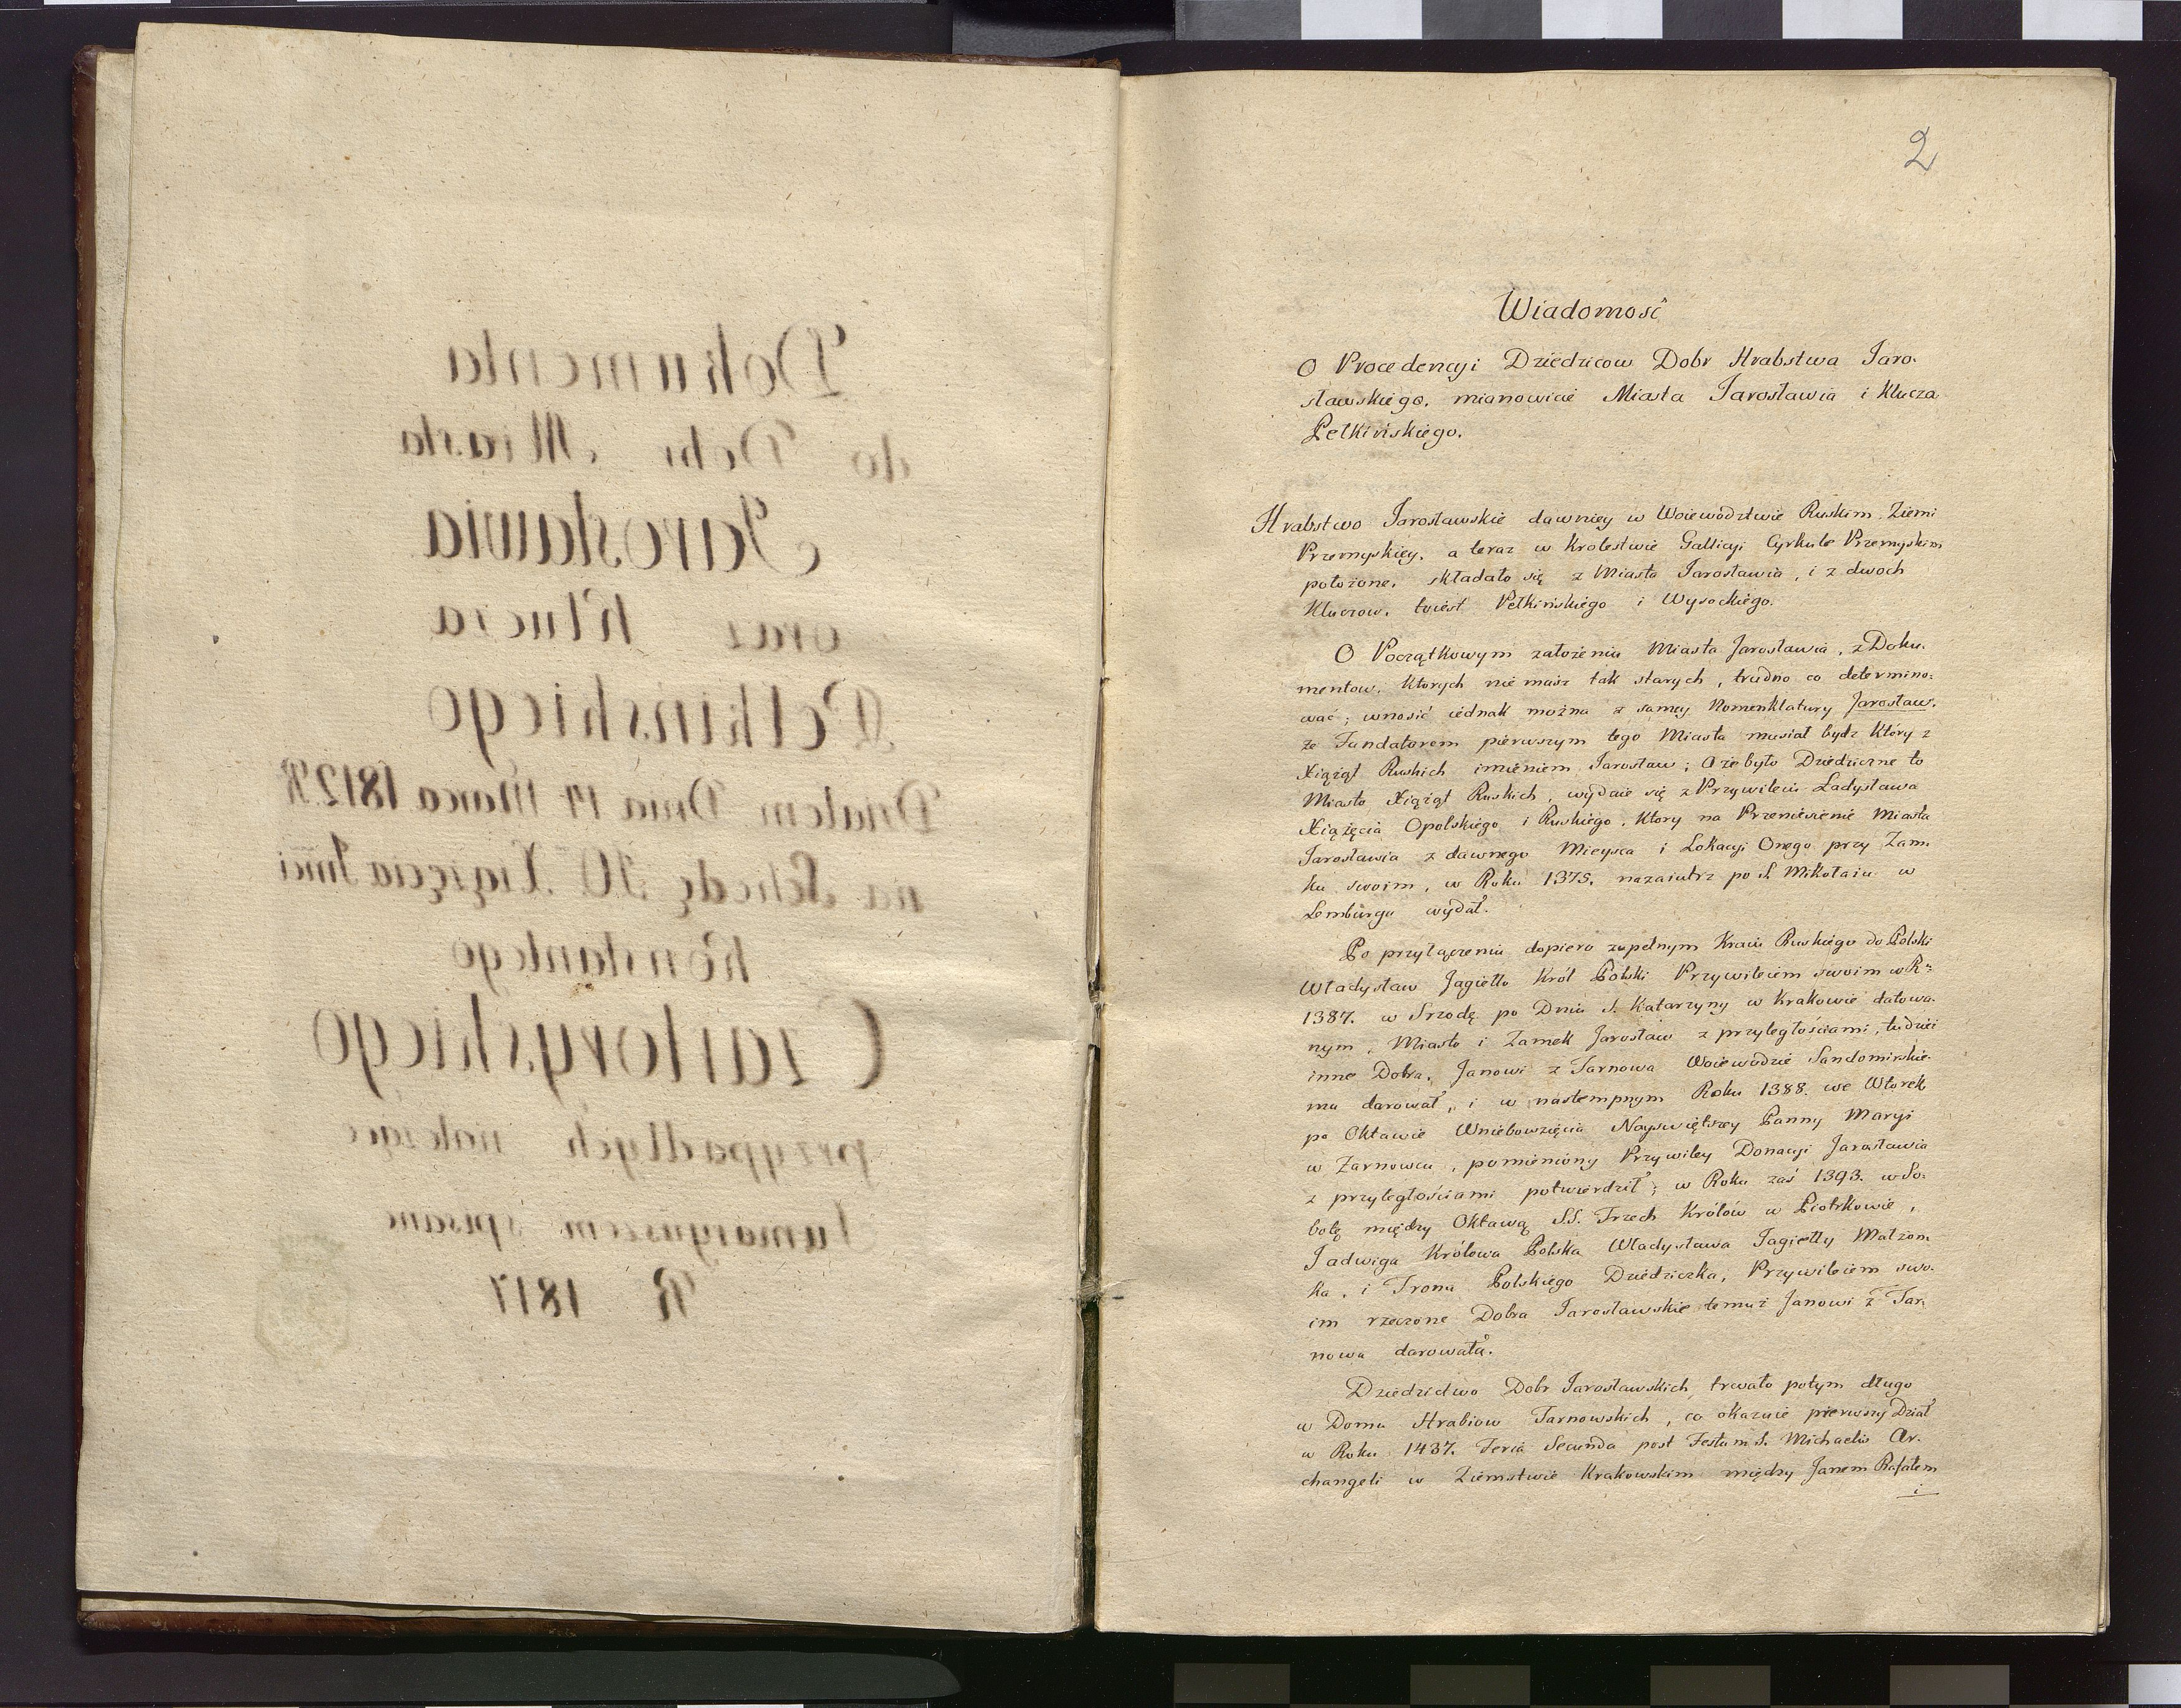 Dokumenta
do Dobr Miasta
Jarosławia
oraz Klucza
Pełkińskiego
Działem Dnia 17 Marca 1812 R
na Schedę JO Xiążęcia Jmci
Konstantego
Czartoryskiego
przypadłych należące
Sumaryuszem spisane
R 1817
2
Wiadomość
O Procedencyi Dziedzicow Dobr Hrabstwa Jaro-
sławskiego, mianowicie Miasta Jarosławia i Klucza
Pełkińskiego.
Hrabstwo Jarosławskie dawniey w Woiewodztwie Ruskim, Ziemi
Przemyskiey, a teraz w Krolestwie Gallicyi Cyrkule Przemyskim
położone, składało się z Miasta Jarosławia, i z dwoch
Kluczow, toiest Pełkińskiego i Wysockiego.
O Początkowym założeniu Miasta Jarosławia, z Doku-
mentow, ktorych nie masz tak starych, trudno co determino-
wać; wnosić iednak można z samey Nomenklatury Jarosław,
że Fundatorem pierwszym tego Miasta musiał bydz Który z
Xiążąt Ruskich imieniem Jarosław; a że było Dziedziczne to
Miasto Xiążąt Ruskich, wydaie się z Przywileiu Ladysława
Xiążęcia Opolskiego i Ruskiego, Ktory na Przeniesienie Miasta
Jarosławia z dawnego Mieysca i Lokacyi Onego przy Zam-
ku swoim, w Roku 1375. nazaiutrz po S. Mikołaiu w
Lemburgu wydał.
Po przyłączeniu dopiero zupełnym Kraiu Ruskiego do Polski
Władysław Jagiełło Król Polski Przywileiem swoim w Rᵘ
1387. w Srzodę po Dniu S. Katarzyny w Krakowie datowa-
nym, Miasto i Zamek Jarosław z przyległościami, tudzież
inne Dobra, Janowi z Tarnowa Woiewodzie Sandomirskie-
mu darował, i w nastempnym Roku 1388. we Wtorek
po Oktawie Wniebowzięcia Nayswiętszey Panny Maryi
w Żarnowcu, pomieniony Przywiley Donacyi Jarosławia
z przyległościami potwierdził; w Roku zaś 1393. w So-
botę między Oktawą S.S. Trzech Królów w Piotrkowie,
Jadwiga Królowa Polska Władysława Jagiełły Małżon-
ka, i Tronu Polskiego Dziedziczka, Przywileiem swo-
im rzeczone Dobra Jarosławskie temuż Janowi z Tar-
nowa darowała.
Dziedzictwo Dobr Jarosławskich trwało potym długo
w Domu Hrabiow Tarnowskich, co okazuie pierwszy Dział
w Roku 1437. Feria Secunda post Festum S. Michaelis Ar-
changeli w Ziemstwie Krakowskim między Janem Rafałem
i